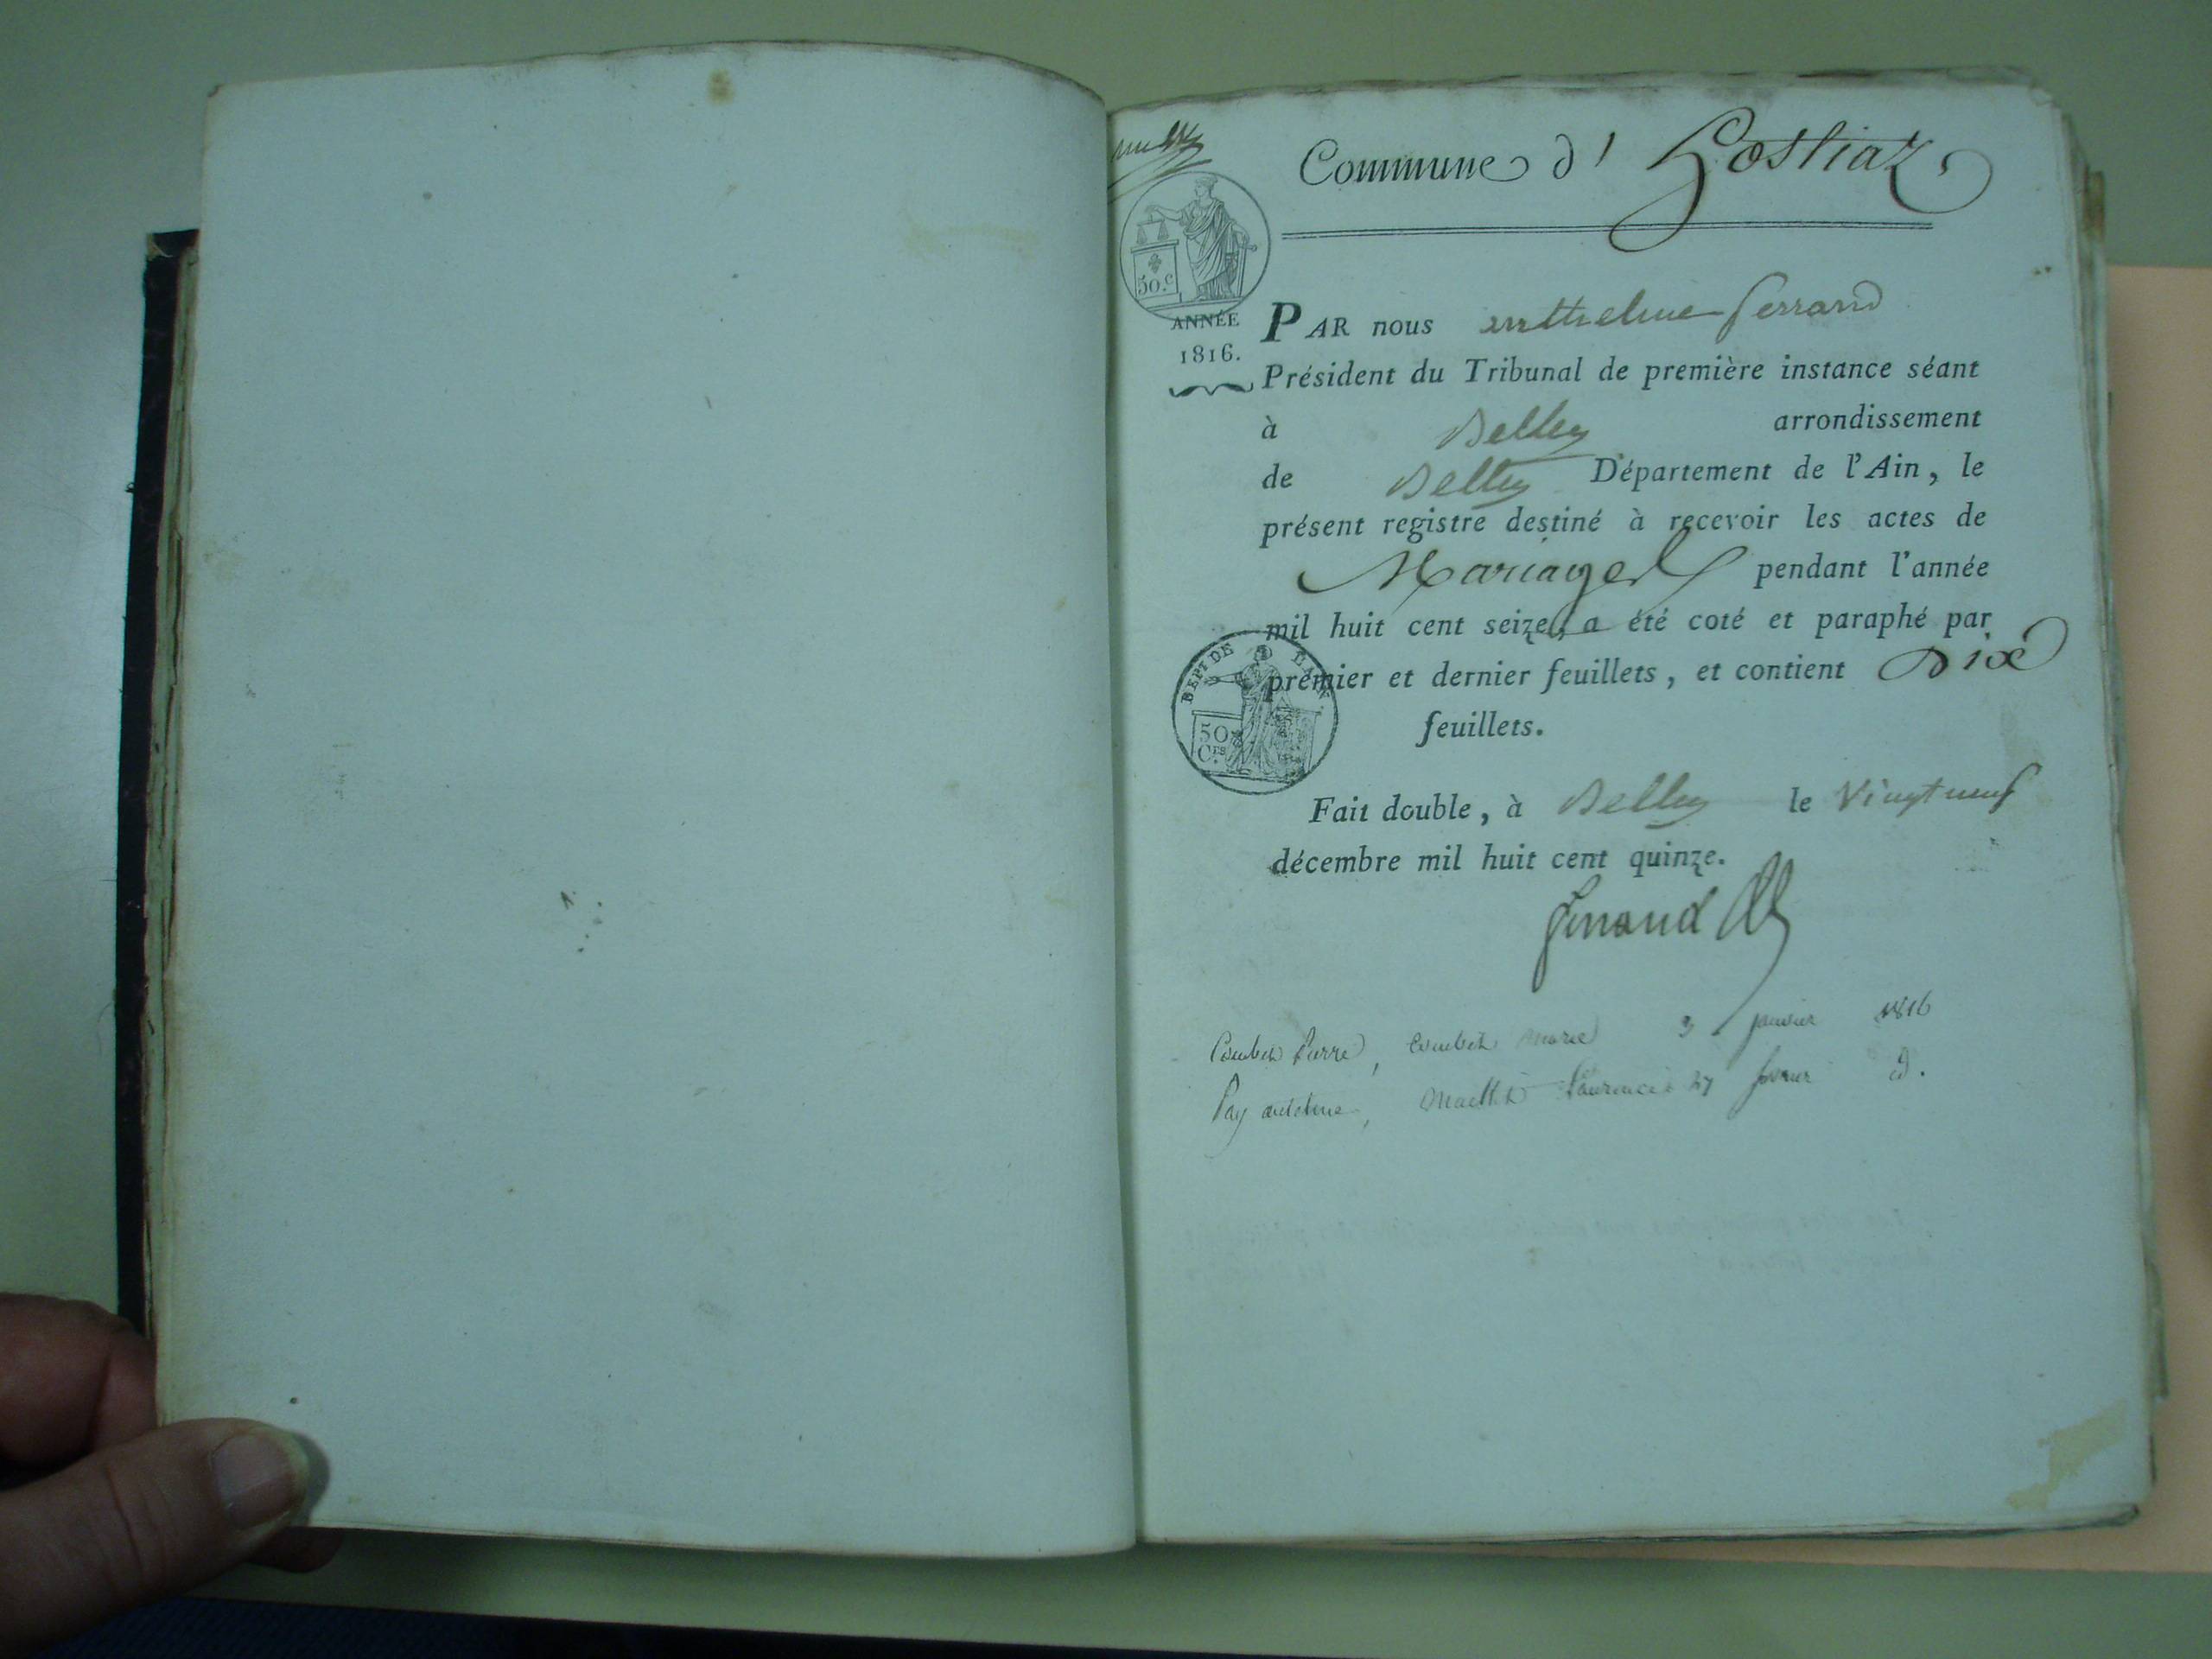 Commune d' Hostiaz
50.c
ANNÉE
1816.
PAR nous anthelme ferrand
Président du Tribunal de première instance séant
à Belley arrondissement
de Belley Département de l'Ain, le
présent registre destiné à recevoir les actes de
Mariages pendant l'année
mil huit cent seize, a été coté et paraphé par
premier et dernier feuillets, et contient Dix
feuillets.
DEPT DE L'AIN
50
CES
Fait double, à Belley le Vingt neuf
décembre mil huit cent quinze.
ferrand
Pierre, Marie 3 janvier 1816
Pay antelme, Laurence 27 fevrier d.